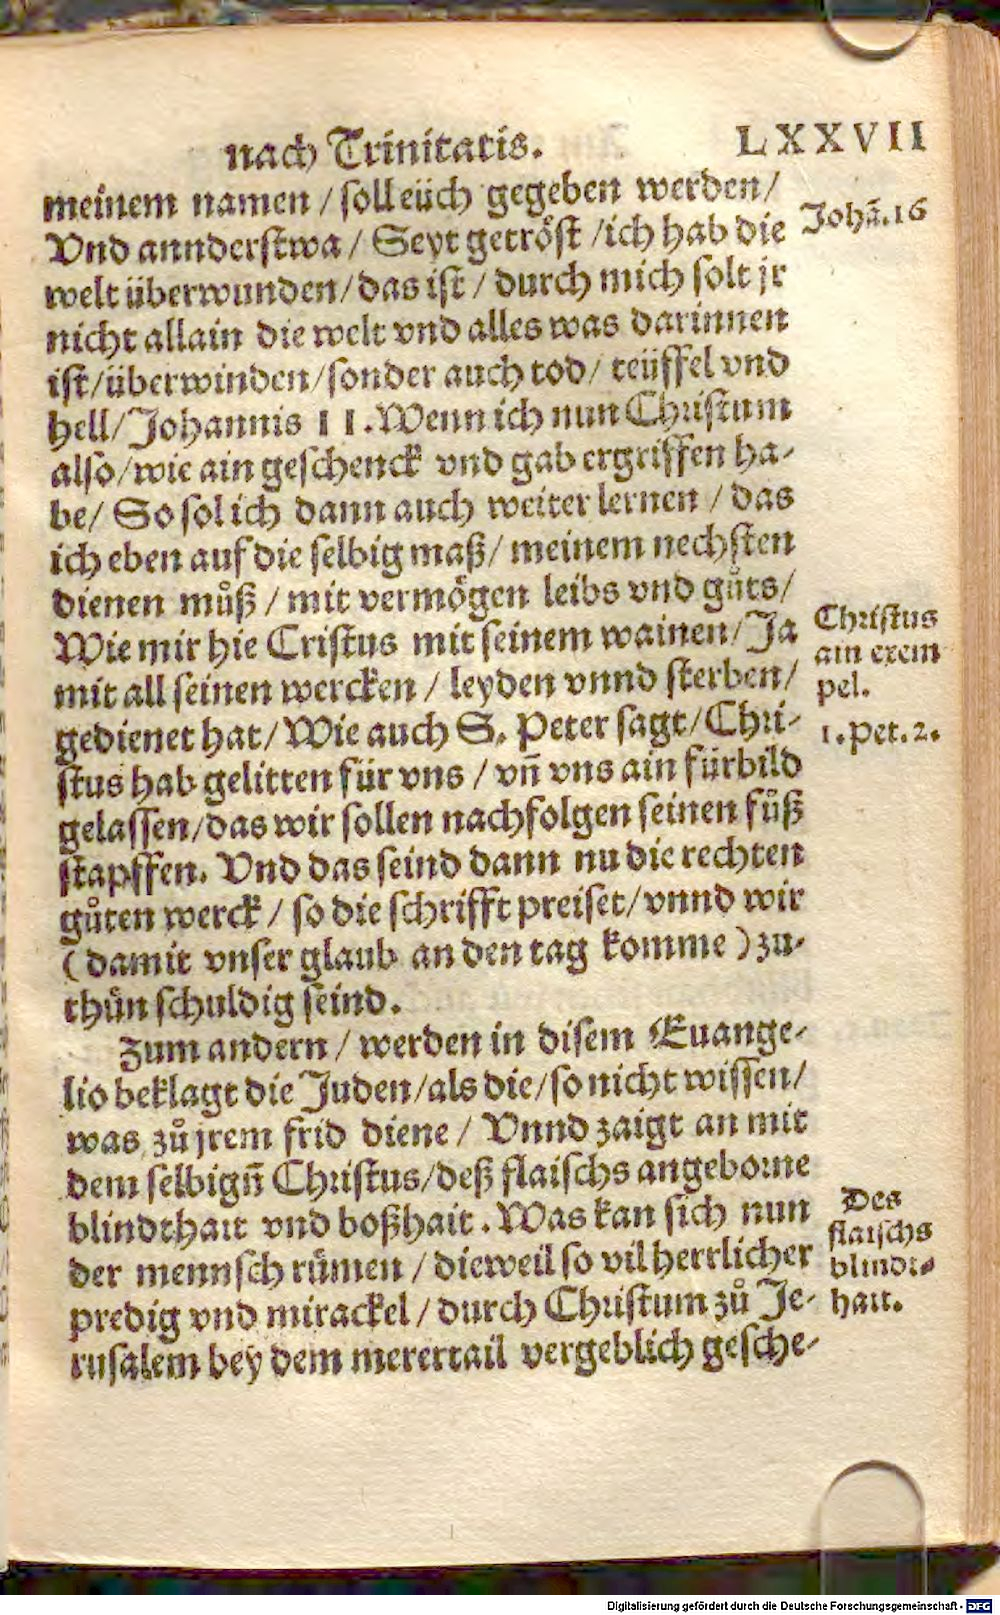 nach Trinitatis. LXXVII
meinem namen / soll eüch gegeben werden /
Vnd annderstwa / Seyt getröst / ich hab die
Johā. 16
welt überwunden / das ist / durch mich solt jr
nicht allain die welt vnd alles was darinnen
ist / überwinden / sonder auch tod / teüffel vnd
hell / Johannis 11. Wenn ich nun Christum
also / wie ain geschenck vnd gab ergriffen ha-
be / So sol ich dann auch weiter lernen / das
ich eben auf die selbig maß / meinem nechsten
dienen můß / mit vermögen leibs vnd gůts /
Wie mir hie Cristus mit seinem wainen / Ja
mit all seinen wercken / leyden vnnd sterben /
Christus
ain exem
pel.
gedienet hat / Wie auch S. Peter sagt / Chri-
1. Pet. 2.
stus hab gelitten für vns / vn̄ vns ain fürbild
gelassen / das wir sollen nachfolgen seinen fůß
stapffen. Vnd das seind dann nu die rechten
gůten werck / so die schrifft preiset / vnnd wir
( damit vnser glaub an den tag komme ) zu-
thůn schuldig seind.
Zum andern / werden in disem Euange-
lio beklagt die Juden / als die / so nicht wissen /
was zů jrem frid diene / Vnnd zaigt an mit
dem selbign̄ Christus / deß flaischs angeborne
blindthait vnd boßhait. Was kan sich nun
der mennsch rümen / dieweil so vil herrlicher
Des
flaischs
blindt-
hait.
predig vnd mirackel / durch Christum zů Je-
rusalem bey dem merertail vergeblich gesche-
Digitalisierung gefördert durch die Deutsche Forschungsgemeinschaft - DFG